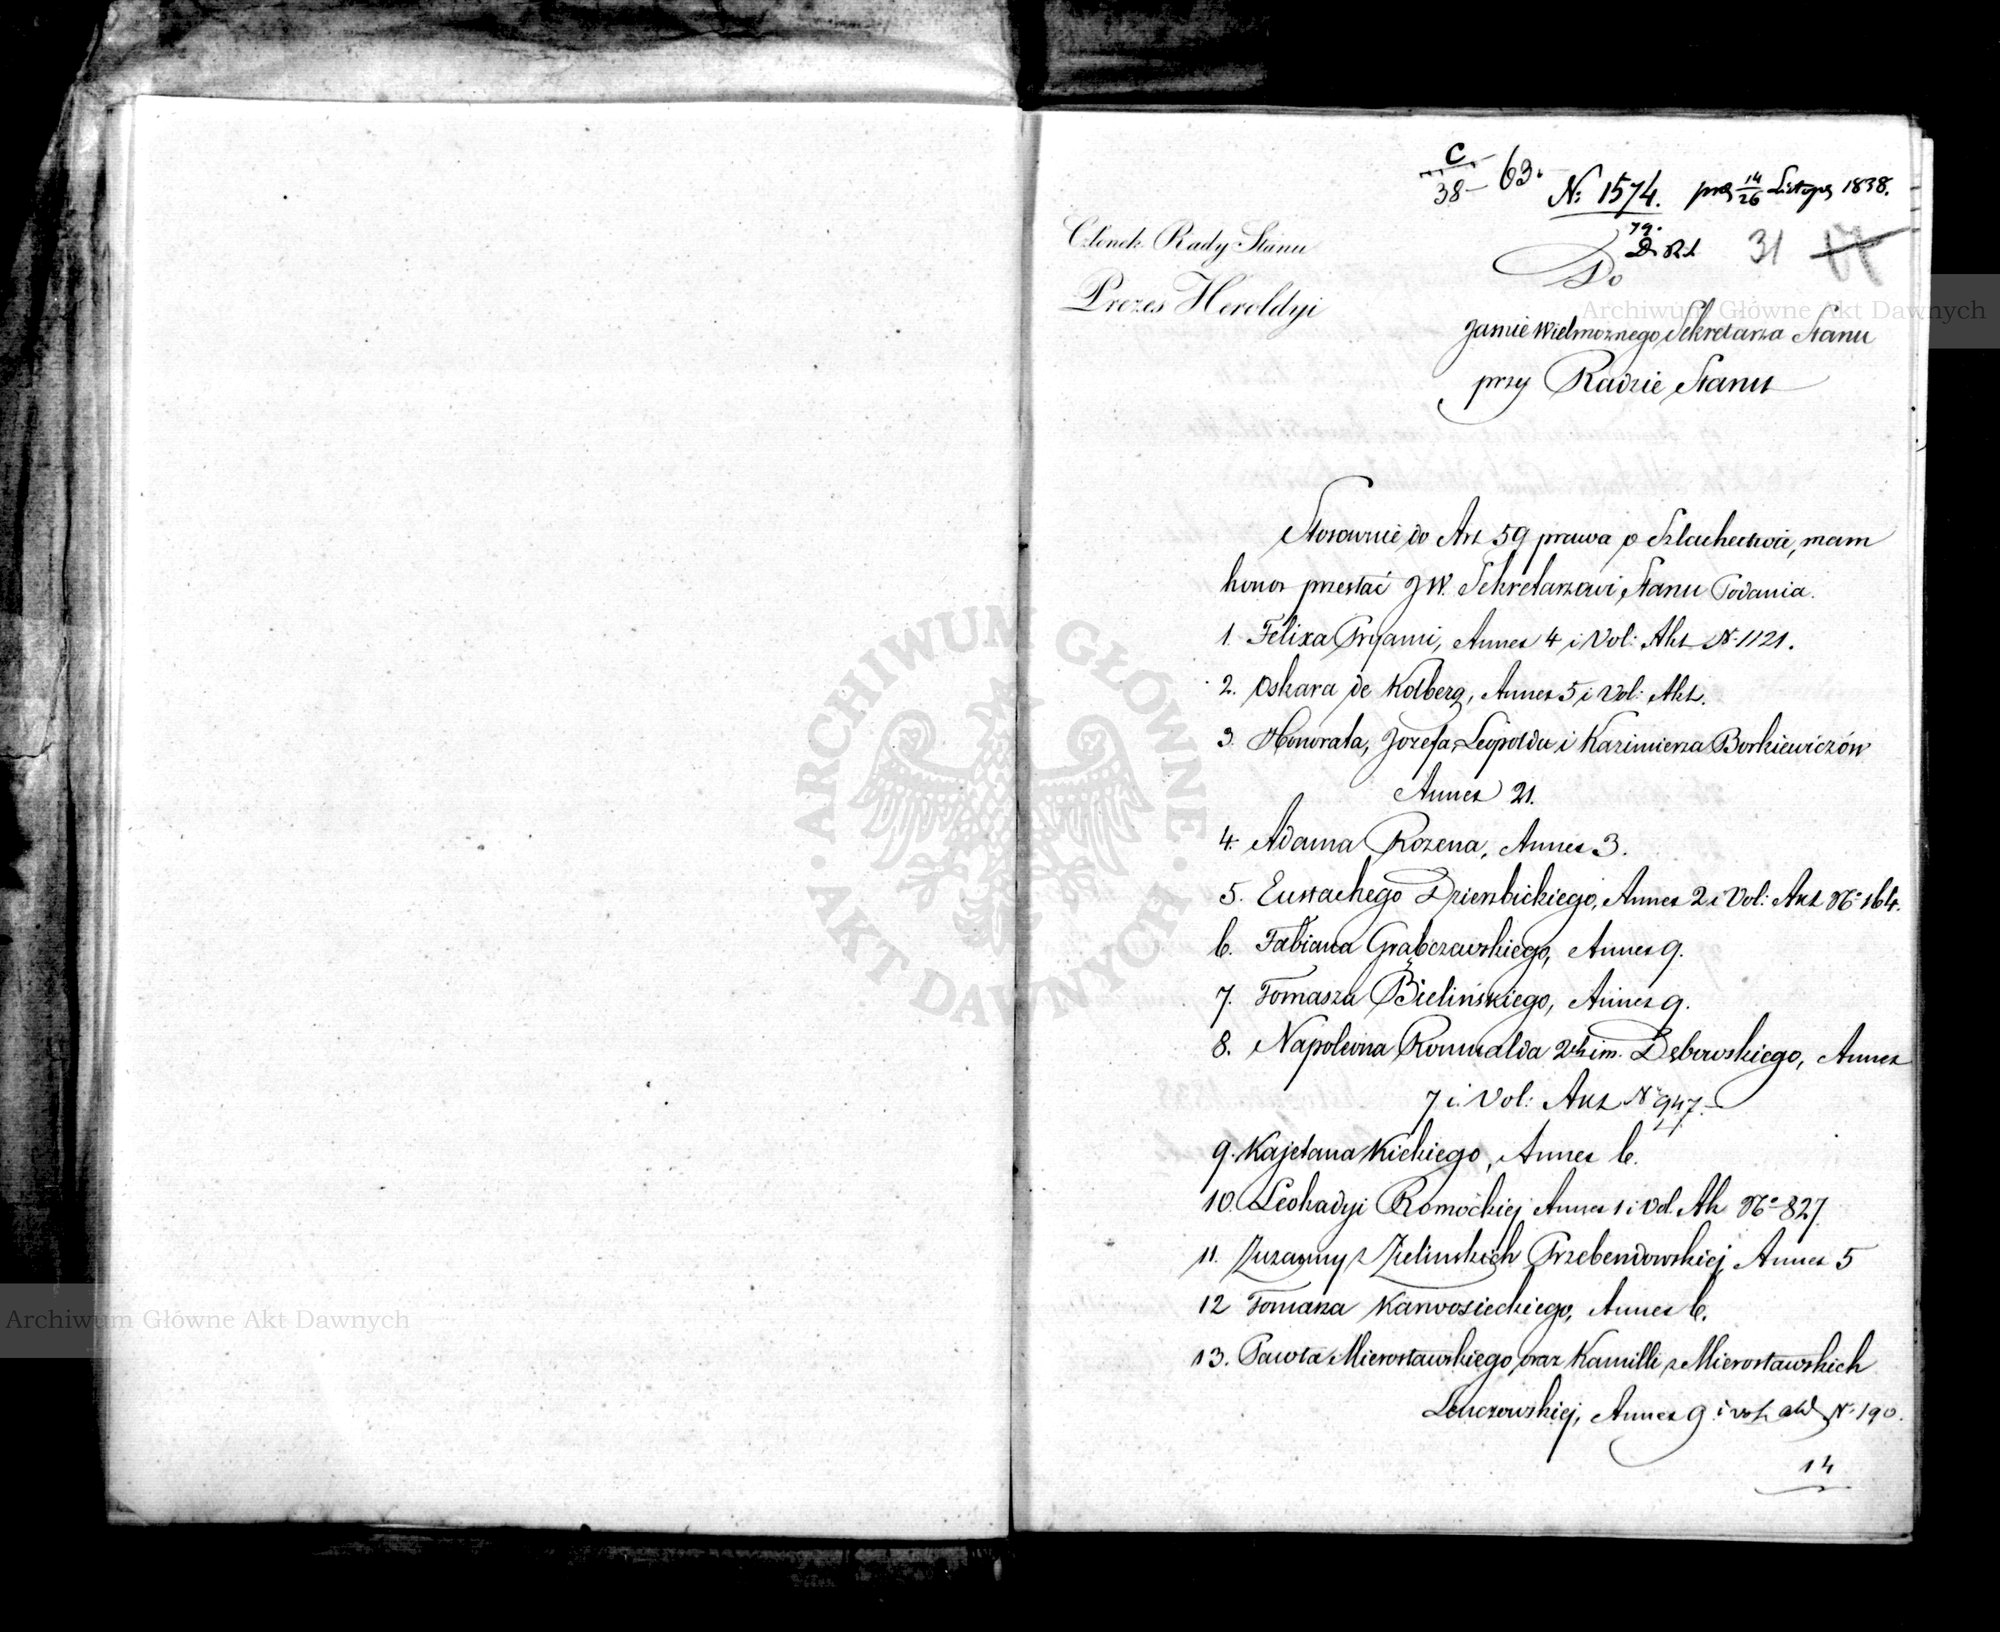 C
38 63.
Nr 1574. prez 14/26 Listop 1838.
79.
D. R. S.
31 17
Członek Rady Stanu
Prezes Heroldyi
Do
Jaśnie Wielmożnego Sekretarza Stanu
przy Radzie Stanu
Stosownie do Art 59 prawa o Szlachectwie, mam
honor przesłać JW. Sekretarzowi Stanu Podania.
1. Felixa Pryami, Annex 4 i Vol: Akt N. 1121.
2. Oskara de Kolberg, Annex 5 i Vol: Akt.
3. Honorata, Józefa, Leopolda i Kazimierza Borkiewiczów
Annex 21.
4. Adama Rozena, Annex 3.
5. Eustachego Dzierzbickiego, Annex 2 i Vol: Akt No 164.
6. Fabiana Grąbczewskiego, Annex 9.
7. Tomasza Bielińskiego, Annex 9.
8. Napoleona Romualda 2ch im. Dębowskiego, Annex
7 i Vol: Akt No 947.
9. Kajetana Kickiego, Annex 6.
10. Leokadyi Romockiej Annex 1 i Vol. Ak No 827
11. Zuzanny z Zielinskich Przebendowskiej Annex 5
12 Tomasza Karwosieckiego, Annex 6.
13. Pawła Mierosławskiego oraz Kamilli z Mierosławskich
Lenczowskiej, Annex 9 i vol. akt N. 190.
14
Archiwum Główne Akt Dawnych
ARCHIWUM GŁÓWNE · AKT DAWNYCH ·
Archiwum Główne Akt Dawnych